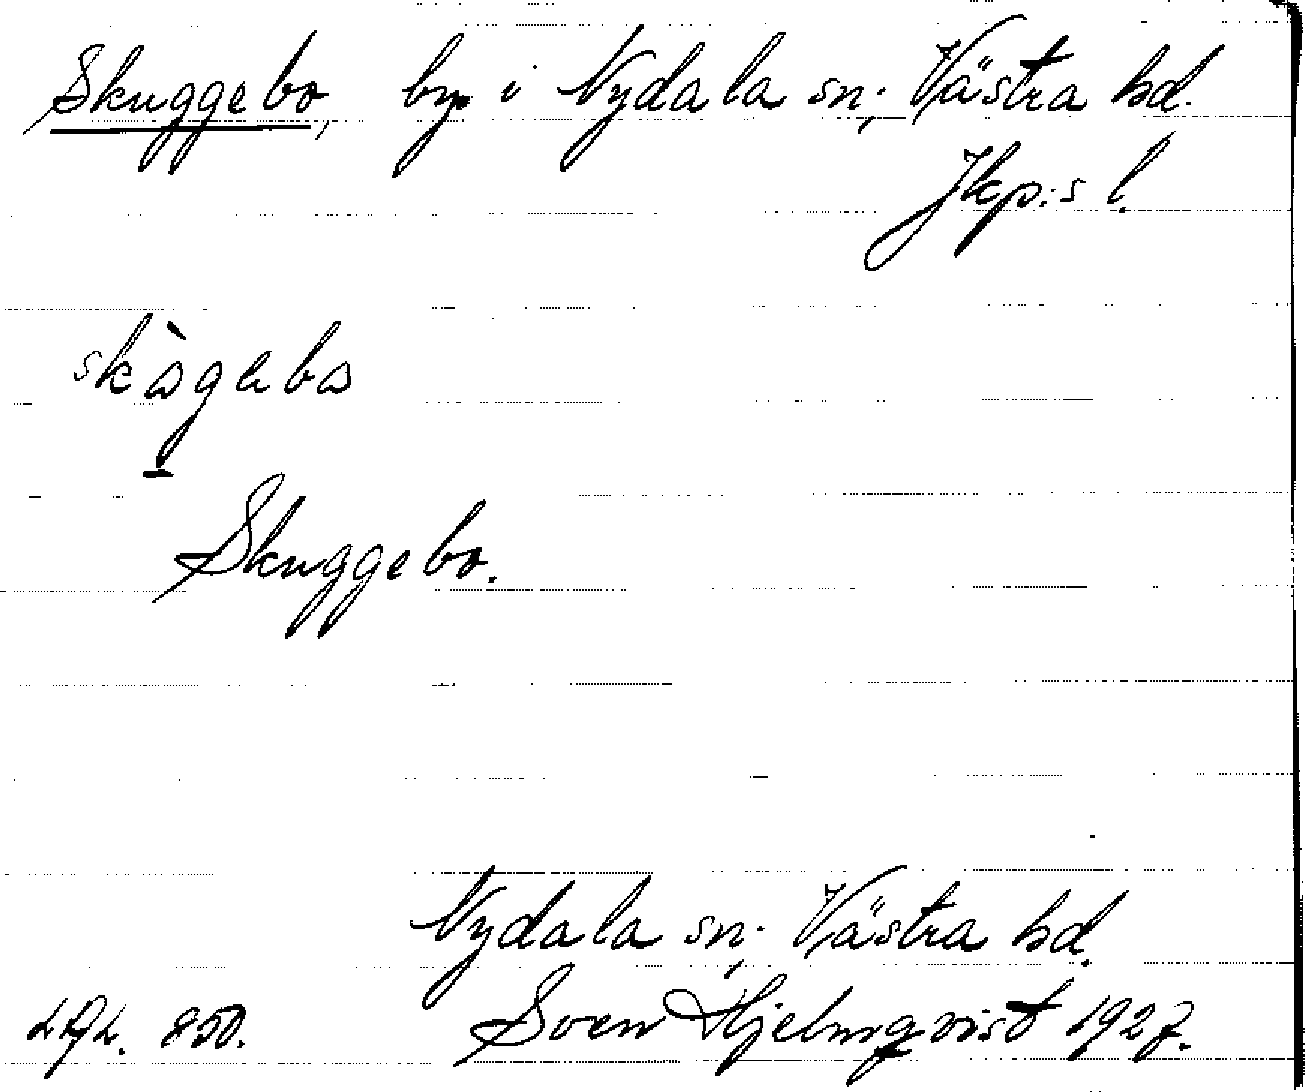 Skuggebo, by i Nydala sn; Västra hd.
Jkp:s l.
Skuggebo.
Nydala sn; Västra hd.
Sven Hjelmqvist 1927.